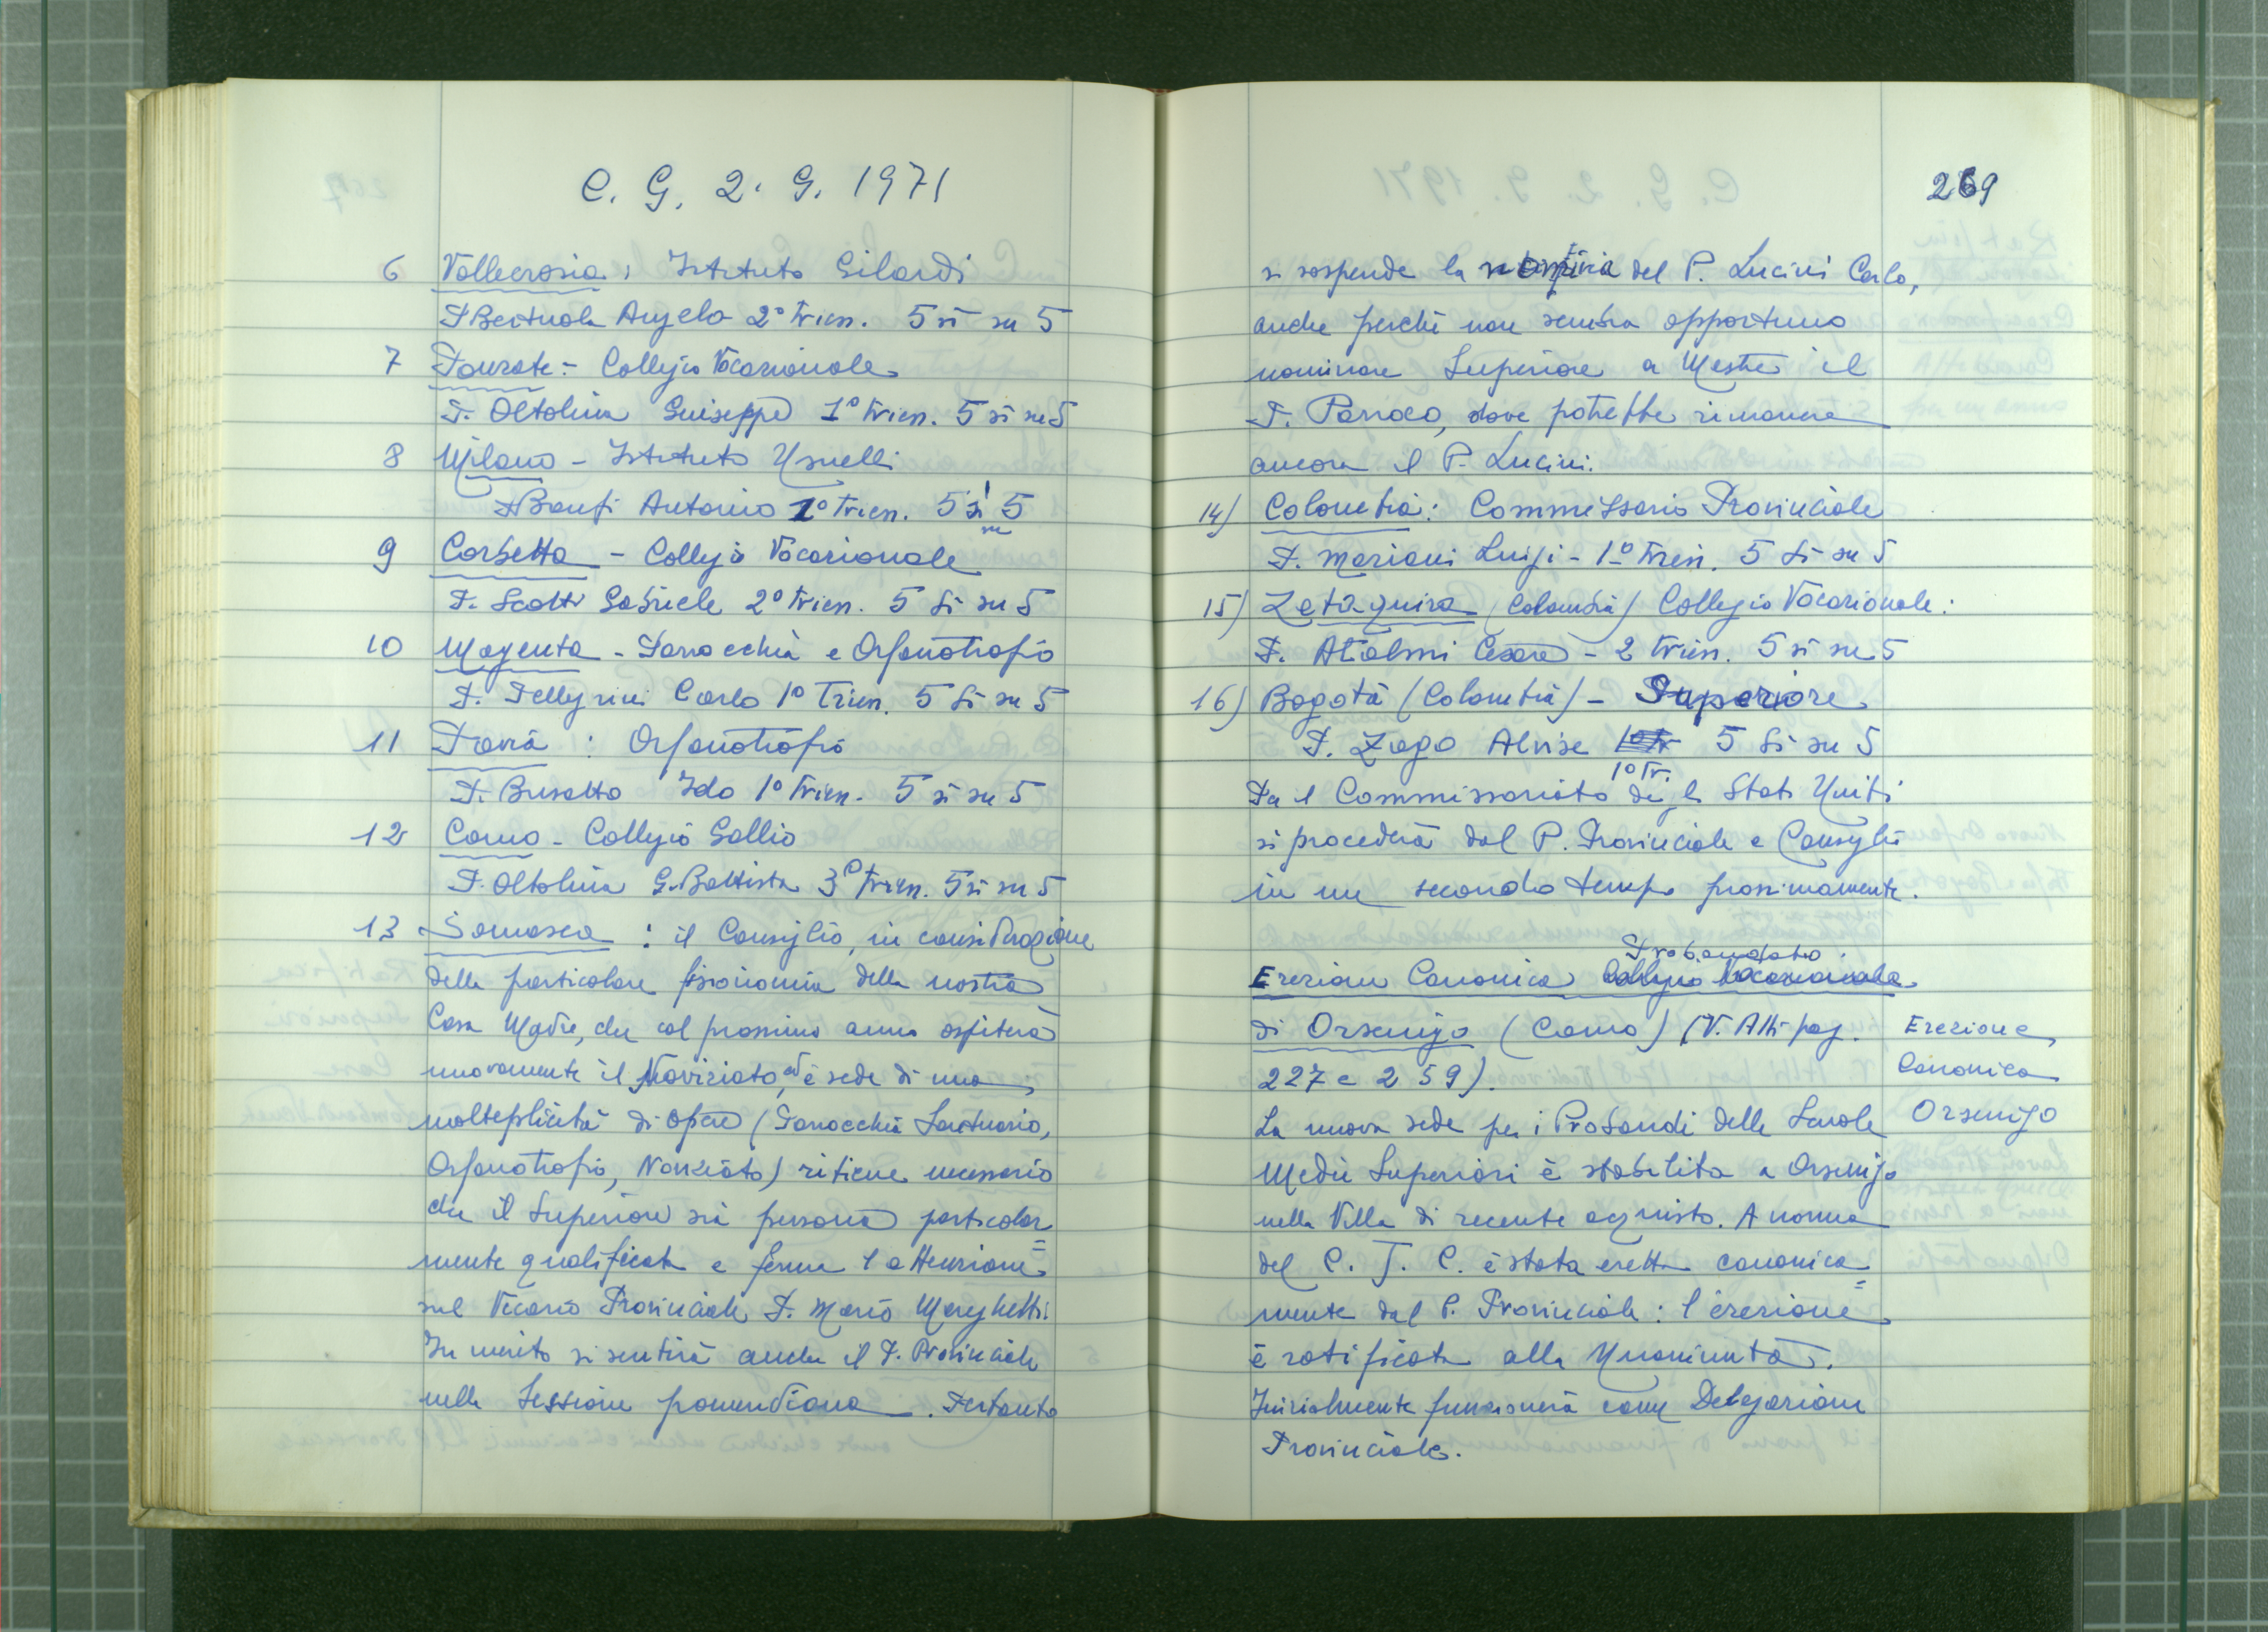 C. G. 2. 9. 1971
6 Vallecrosia: Istituto Gilardi
P. Bertuola Angelo 2° Trien. 5 sì su 5
7 Ponzate - Collegio Vocazionale
P. Oltolina Giuseppe 1° Trien. 5 sì su 5
8 Milano - Istituto Usuelli
P. Banfi Antonio 1° Trien. 5 sì su 5
9 Corbetta - Collegio Vocazionale
P. Scotti Gabriele 2° Trien. 5 sì su 5
10 Magenta - Parrocchia e Orfanotrofio
P. Pellegrini Carlo 1° Trien. 5 sì su 5
11 Pavia : Orfanotrofio
P. Busatto Ido 1° Trien. 5 sì su 5
12 Como - Collegio Gallio
P. Oltolina G. Battista 3° Trien. 5 sì su 5
13 Somasca : il Consiglio, in considerazione
della particolare fisionomia della nostra
Casa Madre, che col prossimo anno ospiterà
nuovamente il Noviziato, ed è sede di una
molteplicità di opere (Parrocchia Santuario,
Orfanotrofio, Noviziato) ritiene necessario
che il Superiore sia persona particolar=
mente qualificata e ferma l'attenzione
sul Vicario Provinciale P. Mario
In merito si sentirà anche il P. Provinciale
nella Sessione pomeridiana. Pertanto
269
si sospende la nomina del P. Lucini Carlo,
anche perché non sembra opportuno
nominare Superiore a Mestre il
P. Parroco, dove potrebbe rimanere
ancora il P. Lucini.
14) Colombia: Commissario Provinciale
P. Mariani Luigi - 1° Trien. 5 sì su 5
15) Zetaquira (Colombia) Collegio Vocazionale:
P. Atalmi Cesare - 2 Trien. 5 sì su 5
16) Bogotà (Colombia) - Superiore
P. Zago Alvise 1° Tr. 5 sì su 5
Per il Commissariato degli Stati Uniti
si procederà dal P. Provinciale e Consiglio
in un secondo tempo prossimamente.
Probandato
Erezione Canonica Collegio Vocazionale
di Orsenigo (Como) (V. Atti pag.
227 e 259).
Erezione
Canonica
Orsenigo
La nuova sede per i Probandi delle Scuole
Medie Superiori è stabilita a Orsenigo
nella Villa di recente acquisto. A norma
del C. J. C. è stata eretta canonica=
mente dal P. Provinciale: l'erezione
è ratificata alla Unanimità.
Inizialmente funzionerà come Delegazione
Provinciale.